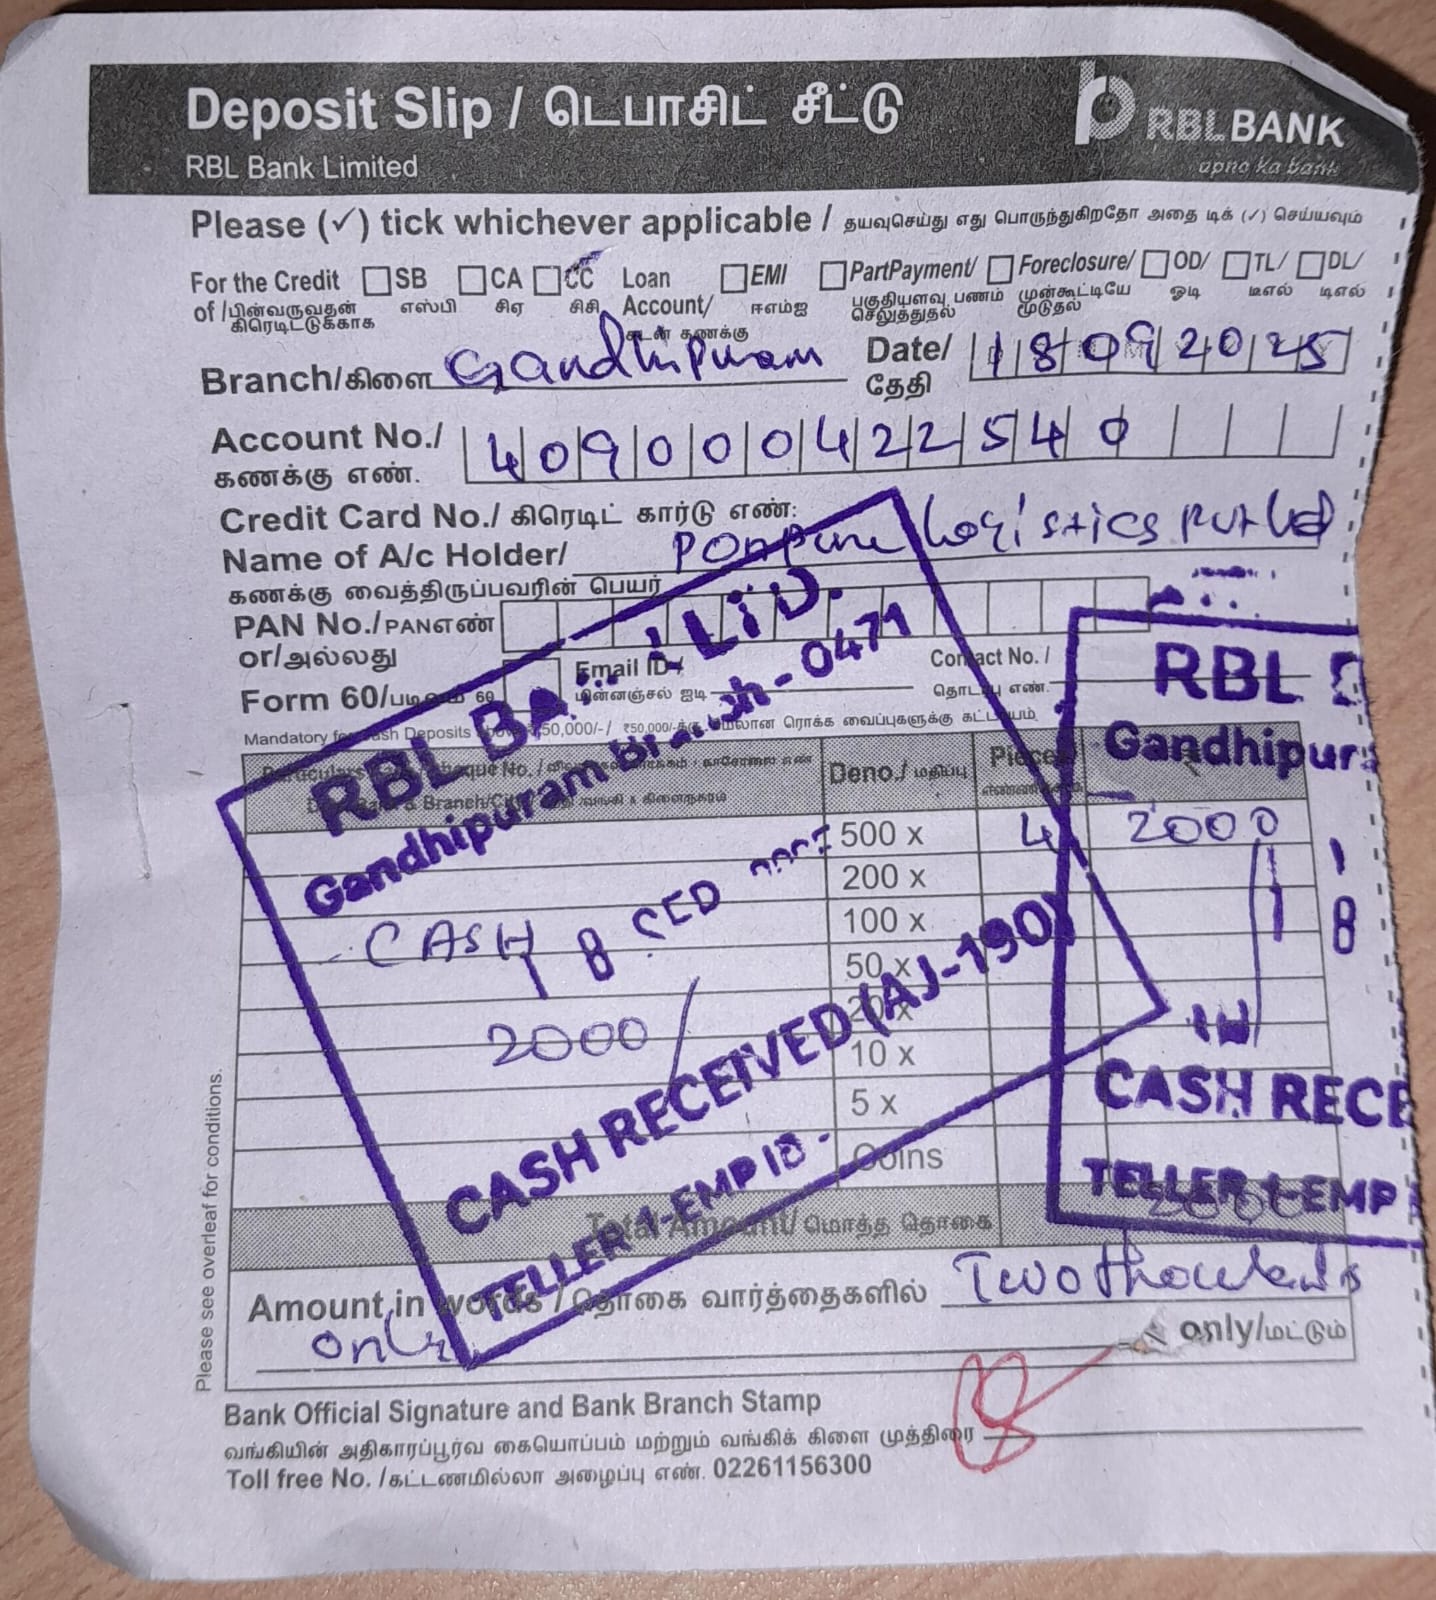 Deposit Slip / டெபாசிட் சீட்டு
RBL BANK
apno ka bank
RBL Bank Limited
Please (✓) tick whichever applicable / தயவுசெய்து எது பொருந்துகிறதோ அதை டிக் (✓) செய்யவும்
For the Credit SB CA CC Loan EMI PartPayment/ Foreclosure/ OD/ TL/ DL/
of /பின்வருவதன் எஸ்பி சிஏ சிசி Account/ ஈஎம்ஐ பகுதியளவு பணம் முன்கூட்டியே ஓடி டிஎல் டிஎல்
கிரெடிட்டுக்காக கடன் கணக்கு செலுத்துதல் முடுதல்
Branch/கிளை Gandhipuram Date/ 18092025
தேதி
Account No./ 409000422540
கணக்கு எண்.
Credit Card No./ கிரெடிட் கார்டு எண்:
Name of A/c Holder/ Logistics Pvt Ltd
கணக்கு வைத்திருப்பவரின் பெயர்
PAN No./PANஎண்
or/அல்லது
Form 60/ 60 Email ID / Contact No. /
மின்னஞ்சல் ஐடி தொடர்பு எண்.
Mandatory for Cash Deposits 50,000/-/ ₹50,000/-க்கு மேலான ரொக்க வைப்புகளுக்கு கட்டாயம்
Cheque No. / Deno./ மதிப்பு Pieces
& Branch/City
500 x 4 2000
200 x
CASH 100 x
50 x
2000/ 20 x
10 x
5 x
Coins
Total Amount/ மொத்த தொகை 2000
Amount in words / தொகை வார்த்தைகளில் Two thousands
only only/மட்டும்
Bank Official Signature and Bank Branch Stamp
வங்கியின் அதிகாரப்பூர்வ கையொப்பம் மற்றும் வங்கிக் கிளை முத்திரை
Toll free No. /கட்டணமில்லா அழைப்பு எண். 02261156300
Please see overleaf for conditions.
RBL LTD.
Gandhipuram Branch - 0471
18
CASH RECEIVED (AJ-190)
TELLER 1-EMP ID -
RBL
Gandhipur
18
CASH RECE
TELLER 1-EMP